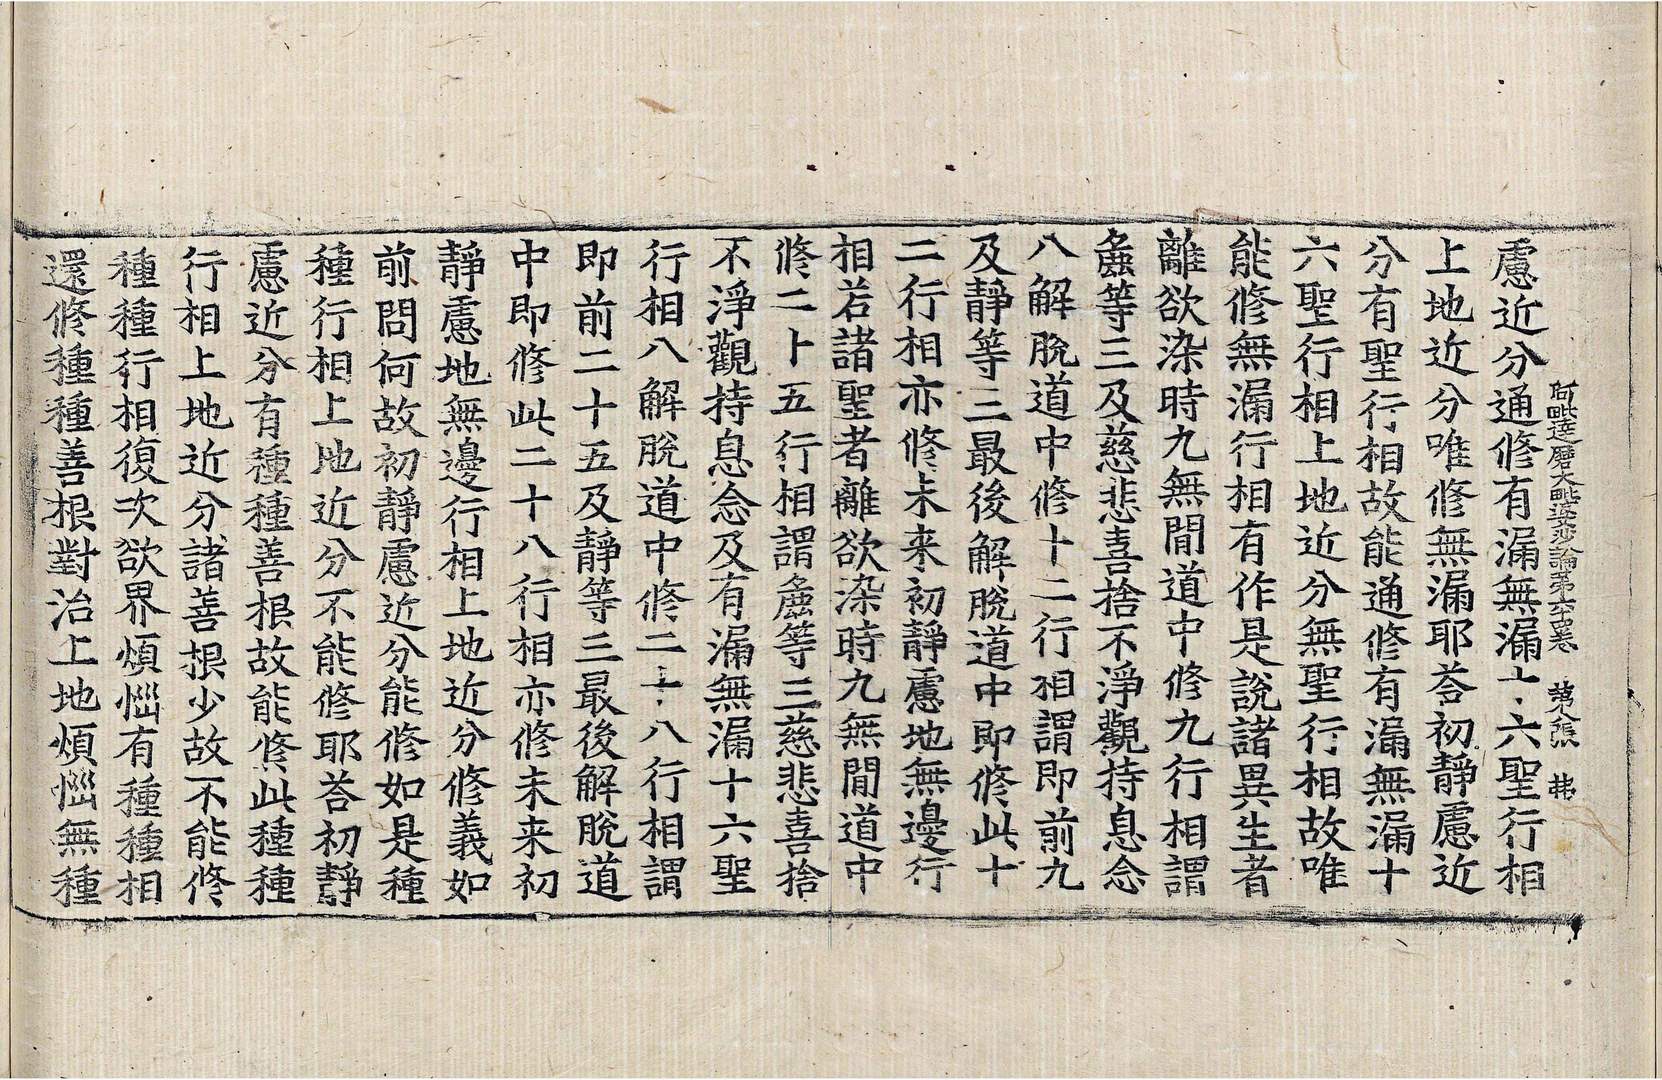 阿毗達磨大毗婆沙論第六十四卷　第八張　弗
慮近分通修有漏無漏十六聖行相
上地近分唯修無漏耶荅初靜慮近
分有聖行相故能通修有漏無漏十
六聖行相上地近分無聖行相故唯
能修無漏行相有作是說諸異生者
離欲染時九無閒道中修九行相謂
麁等三及慈悲喜捨不淨觀持息念
八解脫道中修十二行相謂即前九
及靜等三最後解脫道中即修此十
二行相亦修未来初靜慮地無邊行
相若諸聖者離欲染時九無閒道中
修二十五行相謂麁等三慈悲喜捨
不淨觀持息念及有漏無漏十六聖
行相八解脫道中修二十八行相謂
即前二十五及靜等三最後解脫道
中即修此二十八行相亦修未来初
靜慮地無邊行相上地近分修義如
前問何故初靜慮近分能修如是種
種行相上地近分不能修耶荅初靜
慮近分有種種善根故能修此種種
行相上地近分諸善根少故不能修
種種行相復次欲界煩惱有種種相
還修種種善根對治上地煩惱無種